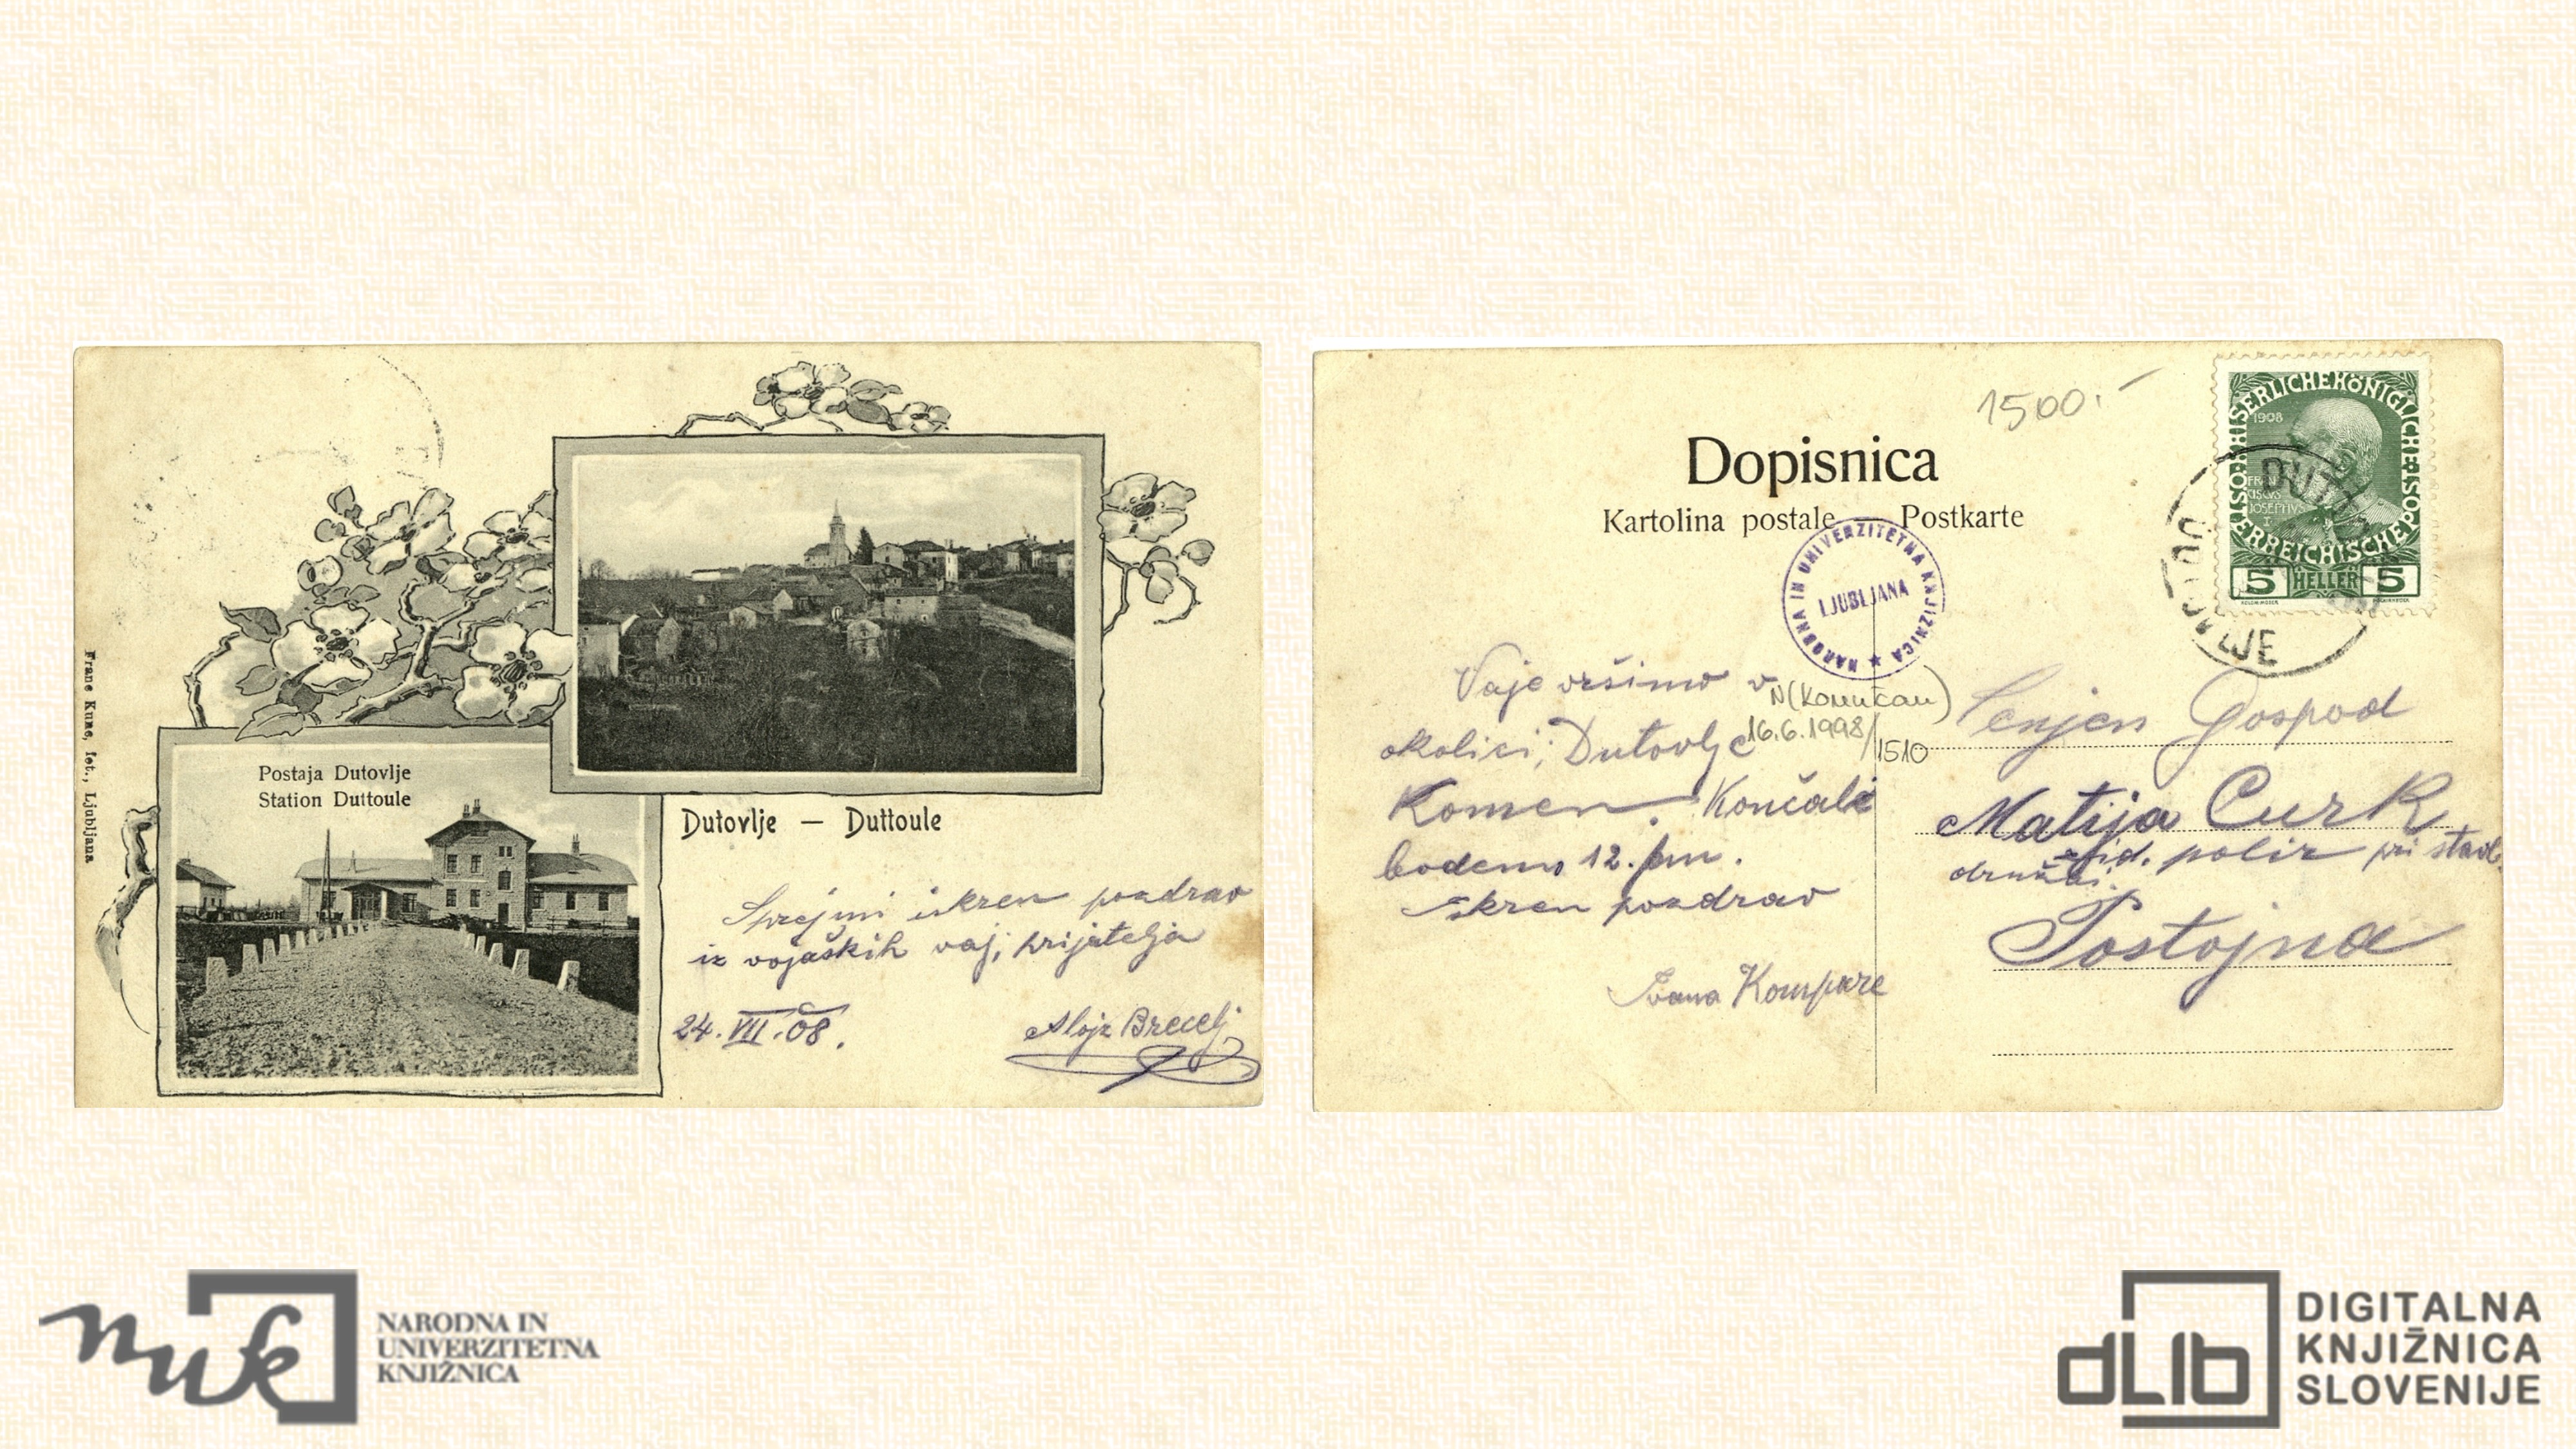 Franc Kunc, fot., Ljubljana
Postaja Dutovlje
Station Duttoule
Dutovlje — Duttoule
Sprejmi iskren pozdrav
iz vojaških vaj, prijatelja
24. VII. 08.
Alojz Brecelj
1500.-
Dopisnica
Kartolina postale Postkarte
NARODNA IN UNIVERZITETNA KNJIŽNICA ★
LJUBLJANA
KAISERLICHE KÖNIGLICHE ÖSTERREICHISCHE POST
1908
5 HELLER 5
DUTOVLJE
Vaje vršimo v
okolici; Dutovlje
Komen. Končali
bodemo 12.
Iskren pozdrav
Ivana Kompare
16.6.1998/1510
Cenjen Gospod
Matija Curk
zid. polir pri stavb.
družbi.
Postojna
nuk
NARODNA IN
UNIVERZITETNA
KNJIŽNICA
dLib
DIGITALNA
KNJIŽNICA
SLOVENIJE